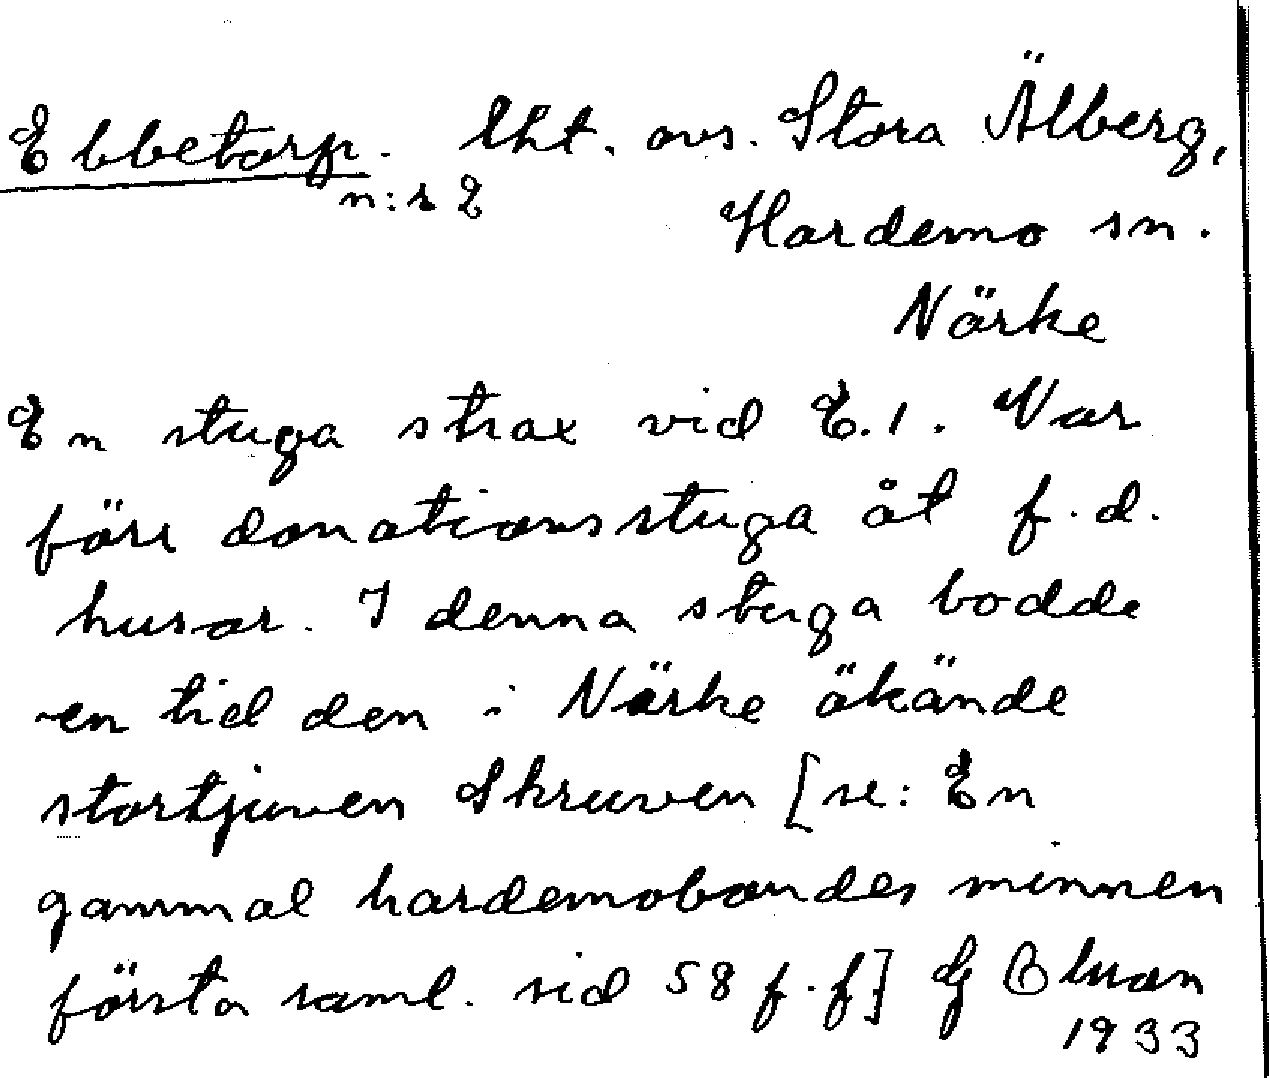 Ebbetorp. lht. avs. Stora Älberg,
n:r 2
Hardemo sn.
Närke
En stuga strax vid E.1. Var
förr donationsstuga åt f.d.
husar. I denna stuga bodde
en tid den i Närke ökände
stortjuven Skruven [se: En
gammal hardemobondes minnen
första saml. sid 58 f.f] G
1933